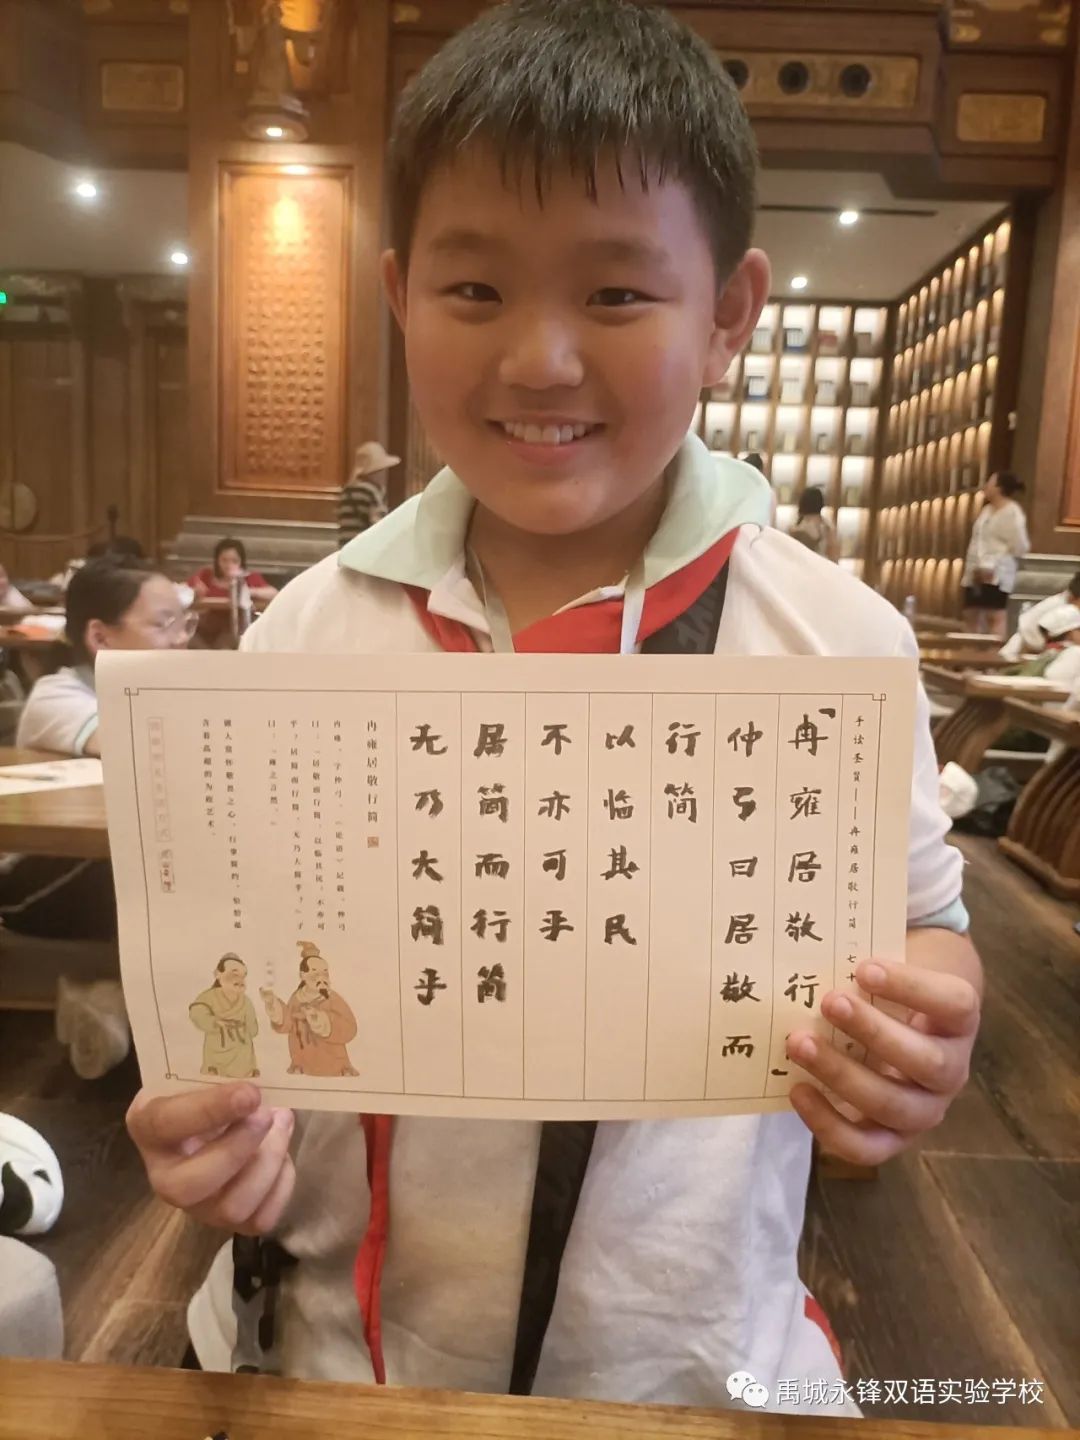 手读圣贤——冉雍居敬行简「七十
「冉雍居敬行
仲弓曰居敬而
行简
以临其民
不亦可乎
居简而行简
无乃大简乎
冉雍居敬行简
冉雍，字仲弓。《论语》记载，仲弓
曰：“居敬而行简，以临其民，不亦可
乎？居简而行简，无乃大简乎？”子
曰：“雍之言然。”
禹城永锋双语实验学校